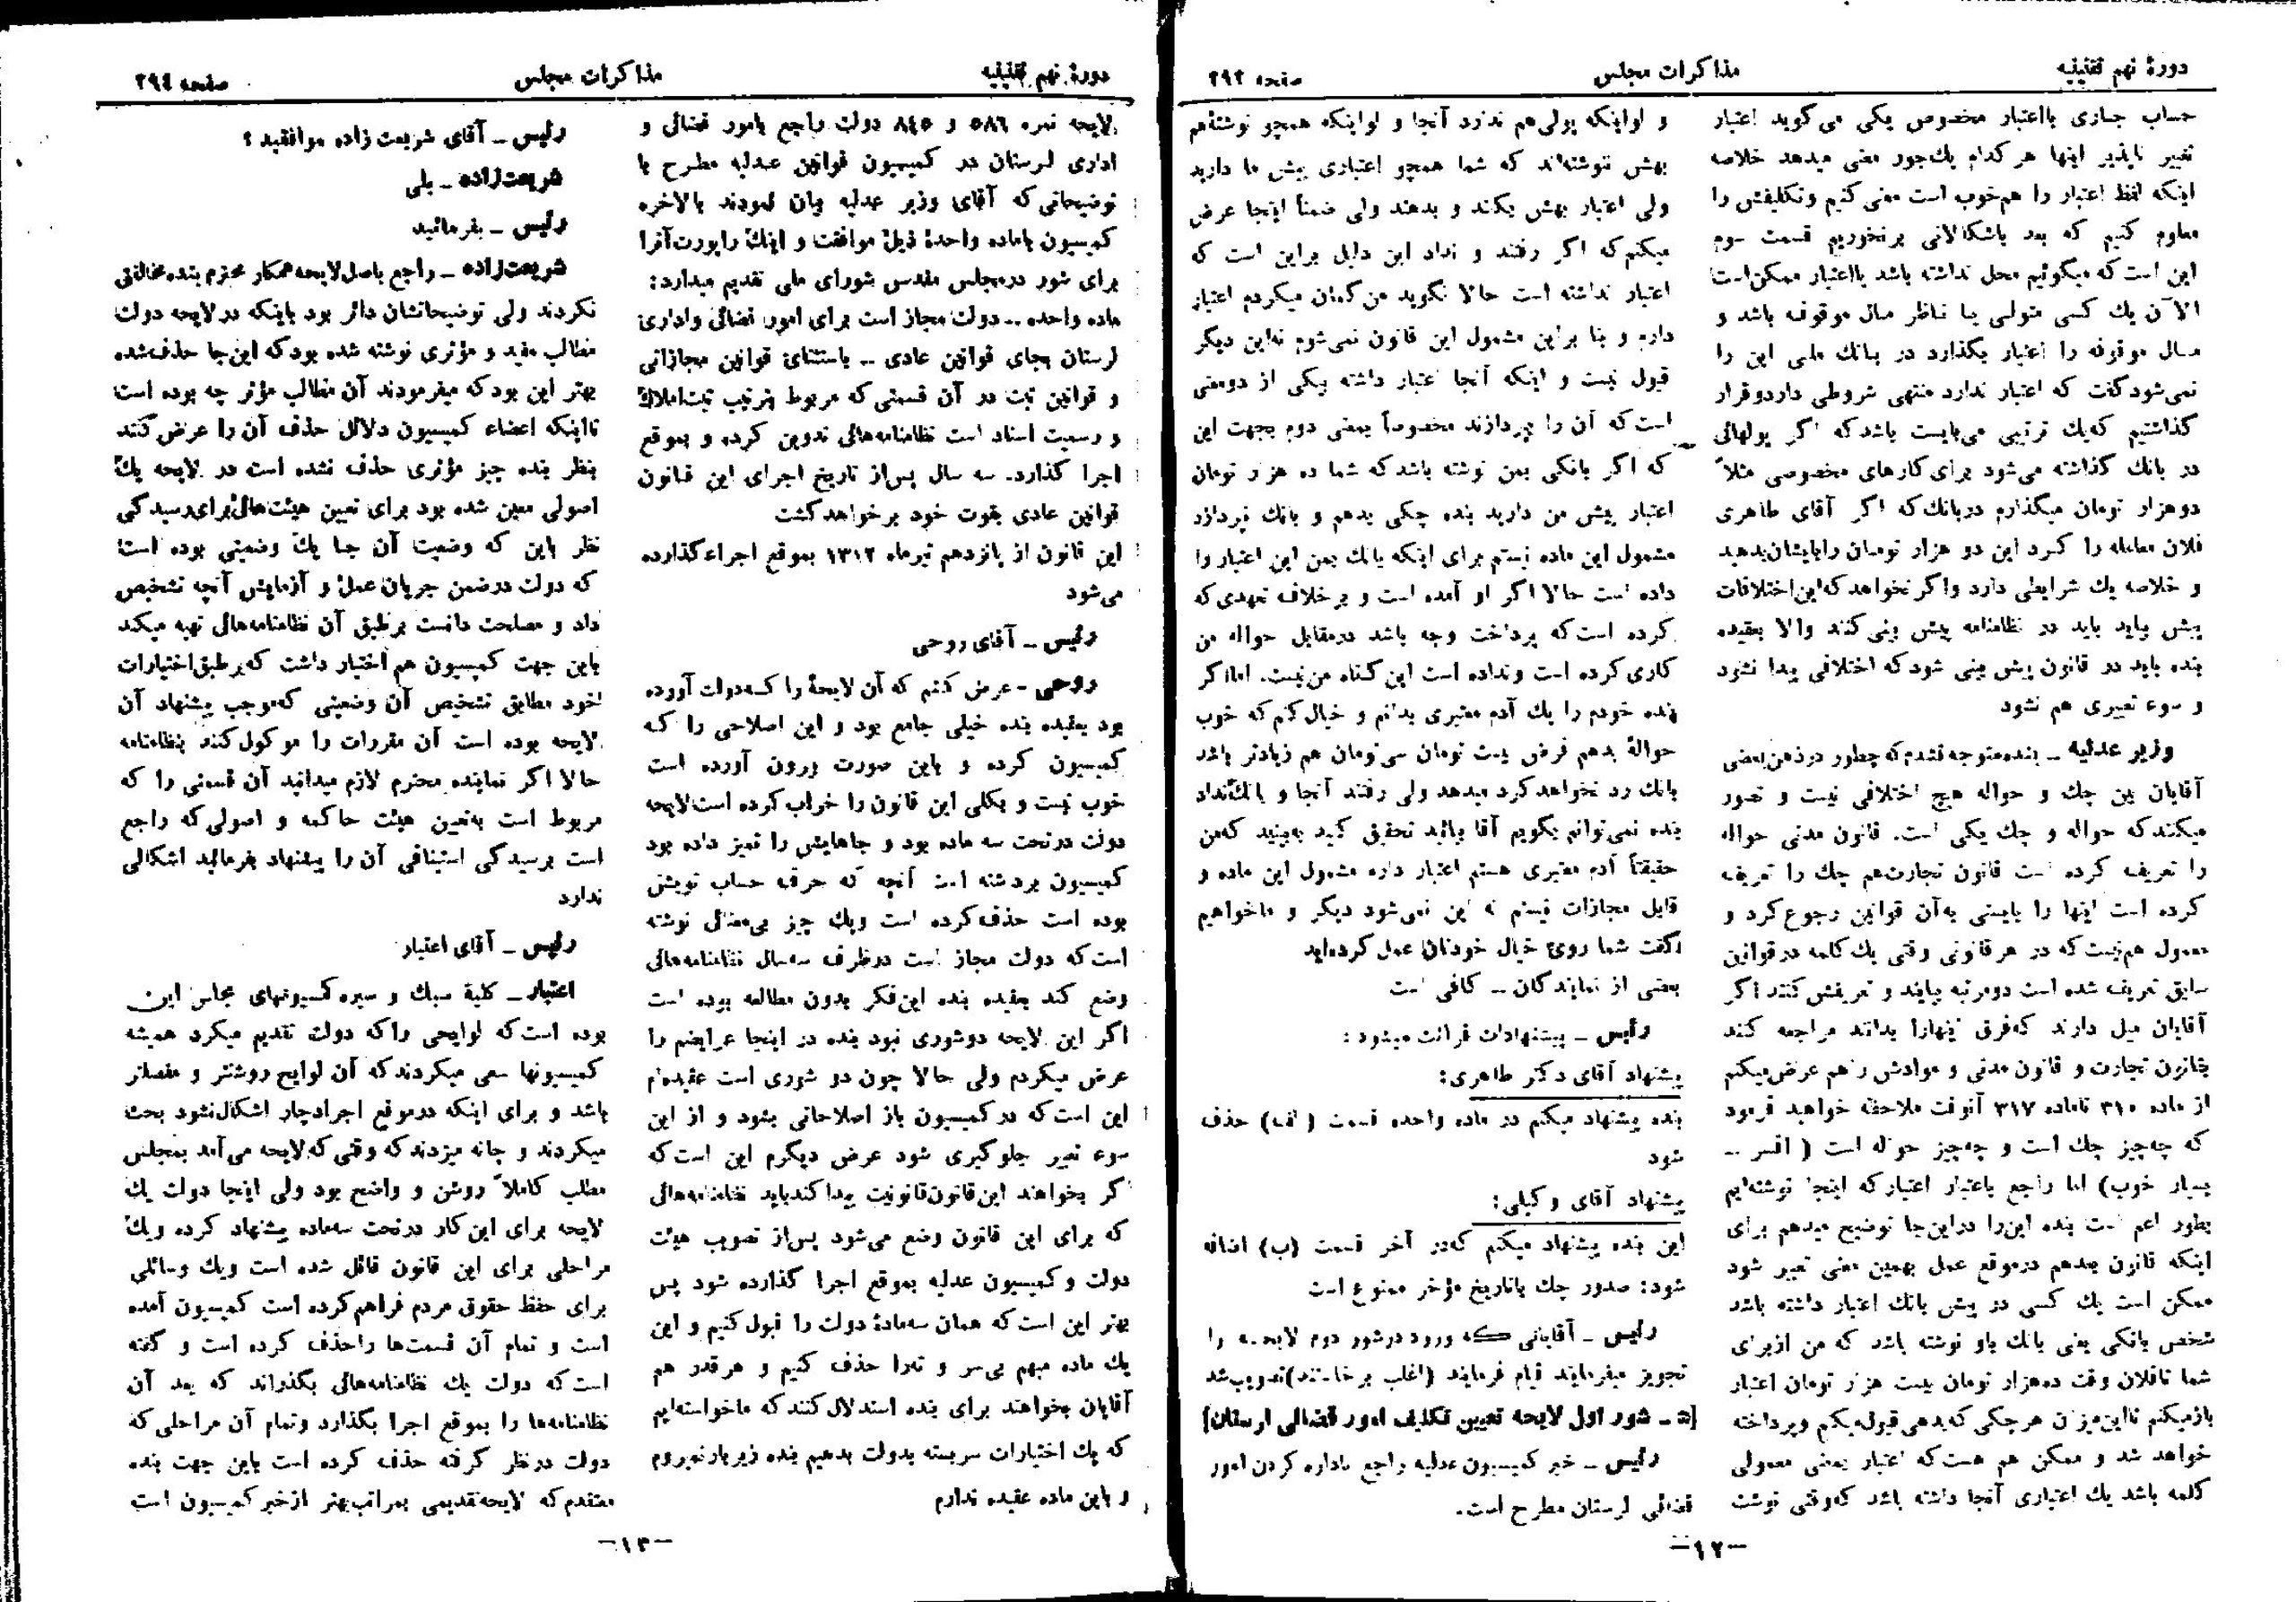 دورهٔ نهم تقنینیه
مذاکرات مجلس
صفحه ۲۹۳
حساب جاری بااعتبار مخصوص یکی می‌گوید اعتبار
تغییر ناپذیر اینها هرکدام یك‌جور معنی میدهد خلاصه
اینکه لفظ اعتبار را هم‌خوب است معنی کنیم وتکلیفش را
معلوم کنیم که بعد باشکالاتی برنخوریم قسمت سوم
این است که میگوئیم محل نداشته باشد یااعتبار ممکن‌است
الآن یك کسی متولی یا ناظر مال موقوفه باشد و
مال موقوفه را اعتبار بگذارد در بانك ملی این را
نمی‌شودگفت که اعتبار ندارد منتهی شروطی داردوقرار
گذاشتیم که‌یك ترتیبی می‌بایست باشدکه اگر پولهائی
در بانك گذاشته می‌شود برای‌کارهای مخصوصی مثلاً
دوهزار تومان میگذارم دربانك‌که اگر آقای طاهری
فلان معامله را کرد این دو هزار تومان رابایشان‌بدهید
و خلاصه یك شرایطی دارد واگر نخواهد که‌این‌اختلافات
پیش بیاید باید در نظامنامه پیش بینی‌کنند والا بعقیده
بنده باید در قانون پیش بینی شودکه اختلافی پیدا نشود
و سوء تعبیری هم نشود
وزیر عدلیه ـ بنده‌متوجه نشدم‌که چطور درذهن‌بعضی
آقایان بین چك و حواله هیچ اختلافی نیست و تصور
میکنندکه حواله و چك یکی است. قانون مدنی حواله
را تعریف کرده است قانون تجارت‌هم چك را تعریف
کرده است اینها را بایستی به‌آن قوانین رجوع‌کرد و
معمول هم‌نیست‌که در هرقانونی وقتی یك‌کلمه درقوانین
سابق تعریف شده است دومرتبه بیایند و تعریفش‌کنند اگر
آقایان میل دارند که‌فرق اینهارا بدانند مراجعه کنند
بقانون تجارت و قانون مدنی و موادش راهم عرض‌میکنم
از ماده ۳۱۰ تاماده ۳۱۷ آنوقت ملاحظه خواهید فرمود
که چه‌چیز چك است و چه‌چیز حواله است ( افسر ـ
بسیار خوب) اما راجع باعتبار اعتبارکه اینجا نوشته‌ایم
بطور اعم است بنده این‌را دراین‌جا توضیح میدهم برای
اینکه قانون بعدهم درموقع عمل بهمین معنی تعبیر شود
ممکن است یك کسی در پیش بانك اعتبار داشته باشد
شخص بانکی یعنی بانك باو نوشته باشد که من ازبرای
شما تافلان وقت ده‌هزار تومان بیست هزار تومان اعتبار
بازمیکنم تااین‌میزان هرچکی که‌بدهی قبول‌میکنم وپرداخته
خواهد شد و ممکن هم هست‌که اعتبار بمعنی معمولی
کلمه باشد یك اعتباری آنجا داشته باشد که‌وقتی نوشت
و لواینکه پولی‌هم ندارد آنجا و لواینکه همچو نوشتهٔ‌هم
بهش ننوشته‌اند که شما همچو اعتباری پیش ما دارید
ولی اعتبار بهش بکنند و بدهند ولی ضمناً اینجا عرض
میکنم‌که اگر رفتند و نداد این دلیل براین است که
اعتبار نداشته است حالا نگوید من‌گمان میکردم اعتبار
دارم و بنا براین مشمول این قانون نمی‌شوم نه‌این دیگر
قبول نیست و اینکه آنجا اعتبار داشته یکی از دومعنی
است‌که آن را بپردازند مخصوصاً بمعنی دوم بجهت این
که اگر بانکی بمن نوشته باشدکه شما ده هزار تومان
اعتبار پیش من دارید بنده چکی بدهم و بانك نپردازد
مشمول این ماده نیستم برای اینکه بانك بمن این اعتبار را
داده است حالا اگر او آمده است و برخلاف تعهدی‌که
کرده است‌که پرداخت وجه باشد درمقابل حواله من
کاری‌کرده است ونداده است این‌گناه من‌نیست. امااگر
بنده خودم را یك آدم معتبری بدانم و خیال‌کنم‌که خوب
حوالهٔ بدهم فرض بیست تومان سی‌تومان هم زیادتر باشد
بانك رد نخواهدکرد میدهد ولی رفتند آنجا و بانك‌نداد
بنده نمی‌توانم بگویم آقا بیائید تحقیق کنید به‌بینید که‌من
حقیقتاً آدم معتبری هستم اعتبار دارم مشمول این ماده و
قابل مجازات نیستم نه این نمی‌شود دیگر و ماخواهیم
گفت شما روی خیال خودتان عمل کرده‌اید
بعضی از نمایندگان ـ کافی است
رئیس ـ پیشنهادات قرائت میشود:
پیشنهاد آقای دکتر طاهری:
بنده پیشنهاد میکنم در ماده واحده قسمت ( الف) حذف
شود
پیشنهاد آقای وکیلی:
این بنده پیشنهاد میکنم که‌در آخر قسمت (ب) اضافه
شود: صدور چك باتاریخ مؤخر ممنوع است
رئیس ـ آقایانی که ورود درشور دوم لایحه را
تجویز میفرمایند قیام فرمایند (اغلب برخاستند)تصویب‌شد
[۵ ـ شور اول لایحه تعیین تکلیف امور قضائی لرستان]
رئیس ـ خبر کمیسیون عدلیه راجع باداره کردن امور
قضائی لرستان مطرح است.
ـ۱۲ـ
دورهٔ نهم تقنینیه
مذاکرات مجلس
صفحه ۲۹٤
لایحه نمره ۵۸٦ و ۸٤۵ دولت راجع بامور قضائی و
اداری لرستان در کمیسیون قوانین عدلیه مطرح با
توضیحاتی‌که آقای وزیر عدلیه بیان نمودند بالاخره
کمیسیون باماده واحدهٔ ذیل‌ٔ موافقت و اینك راپورت‌آنرا
برای شور درمجلس مقدس شورای ملی تقدیم میدارد:
ماده واحده ـ دولت مجاز است برای امور قضائی واداری
لرستان بجای قوانین عادی ـ باستثنای قوانین مجازاتی
و قوانین ثبت در آن قسمتی‌که مربوط بترتیب ثبت‌املاك
و رسمیت اسناد است نظامنامه‌هائی تدوین کرده و بموقع
اجرا گذارد. سه سال پس‌از تاریخ اجرای این قانون
قوانین عادی بقوت خود برخواهدگشت
این قانون از پانزدهم تیرماه ۱۳۱۲ بموقع اجراءگذارده
می‌شود
رئیس ـ آقای روحی
روحی ـ عرض کنم که آن لایحهٔ را که‌دولت آورده
بود بعقیده بنده خیلی جامع بود و این اصلاحی را که
کمیسیون کرده و باین صورت بیرون آورده است
خوب نیست و بکلی این قانون را خراب‌کرده است‌لایحه
دولت درتحت سه ماده بود و جاهایش را تمیز داده بود
کمیسیون برداشته است آنچه که حرف حساب تویش
بوده است حذف‌کرده است ویك چیز بی‌معنائی نوشته
است‌که دولت مجاز است درظرف سه‌سال نظامنامه‌هائی
وضع کند بعقیده بنده این‌فکر بدون مطالعه بوده است
اگر این لایحه دوشوری نبود بنده در اینجا عرایضم را
عرض میکردم ولی حالا چون دو شوری است عقیده‌ام
این است‌که درکمیسیون باز اصلاحاتی بشود و از این
سوء تعبیر جلوگیری شود عرض دیگرم این است‌که
اگر بخواهند این‌قانون‌قانونیت پیداکندباید نظامنامه‌هائی
که برای این قانون وضع می‌شود پس‌از تصویب هیئت
دولت وکمیسیون عدلیه بموقع اجرا گذارده شود پس
بهتر این است‌که همان سه‌مادهٔ دولت را قبول‌کنیم و این
یك ماده مبهم بی‌سر و ته‌را حذف کنیم و هرقدر هم
آقایان بخواهند برای بنده استدلال‌کنندکه ماخواسته‌ایم
که یك اختیارات سربسته بدولت بدهیم بنده زیربارنمیروم
و باین ماده عقیده ندارم
رئیس ـ آقای شریعت زاده موافقید ؟
شریعت‌زاده ـ بلی
رئیس ـ بفرمائید
شریعت‌زاده ـ راجع باصل‌لایحه همکار محترم بنده‌مخالفتی
نکردند ولی توضیحاتشان دائر بود باینکه درلایحه دولت
مطالب مفید و مؤثری نوشته شده بودکه این‌جا حذف‌شده
بهتر این بودکه میفرمودند آن مطالب مؤثر چه بوده است
تااینکه اعضاء کمیسیون دلائل حذف آن را عرض‌کنند
بنظر بنده چیز مؤثری حذف نشده است در لایحه یك
اصولی معین شده بود برای تعیین هیئت‌هائی‌برای‌رسیدگی
نظر باین که وضعیت آن جا یك وضعیتی بوده است
که دولت درضمن جریان‌عمل‌ٔ و آزمایش آنچه تشخیص
داد و مصلحت دانست برطبق آن نظامنامه‌هائی تهیه میکند
باین جهت کمیسیون هم اختیار داشت که‌برطبق‌اختیارات
خود مطابق تشخیص آن وضعیتی که‌موجب پیشنهاد آن
لایحه بوده است آن مقررات را موکول‌کند بنظامنامه
حالا اگر نماینده محترم لازم میدانید آن قسمتی را که
مربوط است به‌تعیین هیئت حاکمه و اصولی‌که راجع
است برسیدگی استینافی آن را پیشنهاد بفرمائید اشکالی
ندارد
رئیس ـ آقای اعتبار
اعتبار ـ کلیهٔ سبك و سیره کمیسیونهای مجلس این
بوده است‌که لوایحی راکه دولت تقدیم میکرد همیشه
کمیسیونها سعی میکردندکه آن لوایح روشنتر و مفصلتر
باشد و برای اینکه درموقع اجرادچار اشکال‌نشود بحث
میکردند و چانه میزدندکه وقتی که‌لایحه می‌آمد بمجلس
مطلب کاملاً روشن و واضح بود ولی اینجا دولت یك
لایحه برای این‌کار درتحت سه‌ماده پیشنهاد کرده ویك
مراحلی برای این قانون قائل شده است ویك وسائلی
برای حفظ حقوق مردم فراهم‌کرده است کمیسیون آمده
است و تمام آن قسمت‌ها راحذف کرده است و گفته
است‌که دولت یك نظامنامه‌هائی بگذراند که بعد آن
نظامنامه‌ها را بموقع اجرا بگذارد وتمام آن مراحلی‌که
دولت درنظر گرفته حذف کرده است باین جهت بنده
معتقدم‌که لایحه‌تقدیمی بمراتب‌بهتر ازخبرکمیسیون است
ـ۱۳ـ